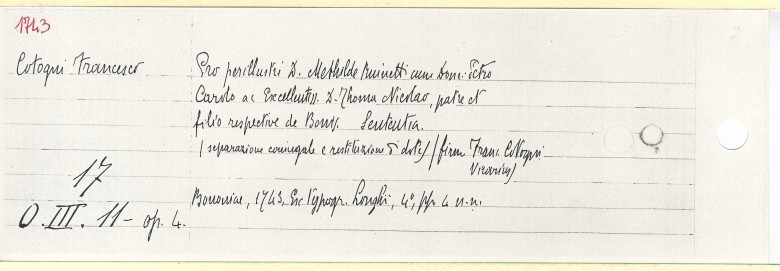 1743
Cotogni Francesco
Pro perillustri D. Methilde cum Dom. Petro
Carolo ac Excellentiss. D. Thoma Nicolao, patre et
filio respective de Bonis. Sententia.
(separazione coniugale e restituzione di dote) (firm. Franc. Cotogni
Vicarius)
17
O. III. 11 - op. 4.
Bononiae, 1743, Ex Typogr. Longhi, 4°, pp. 4 n.n.